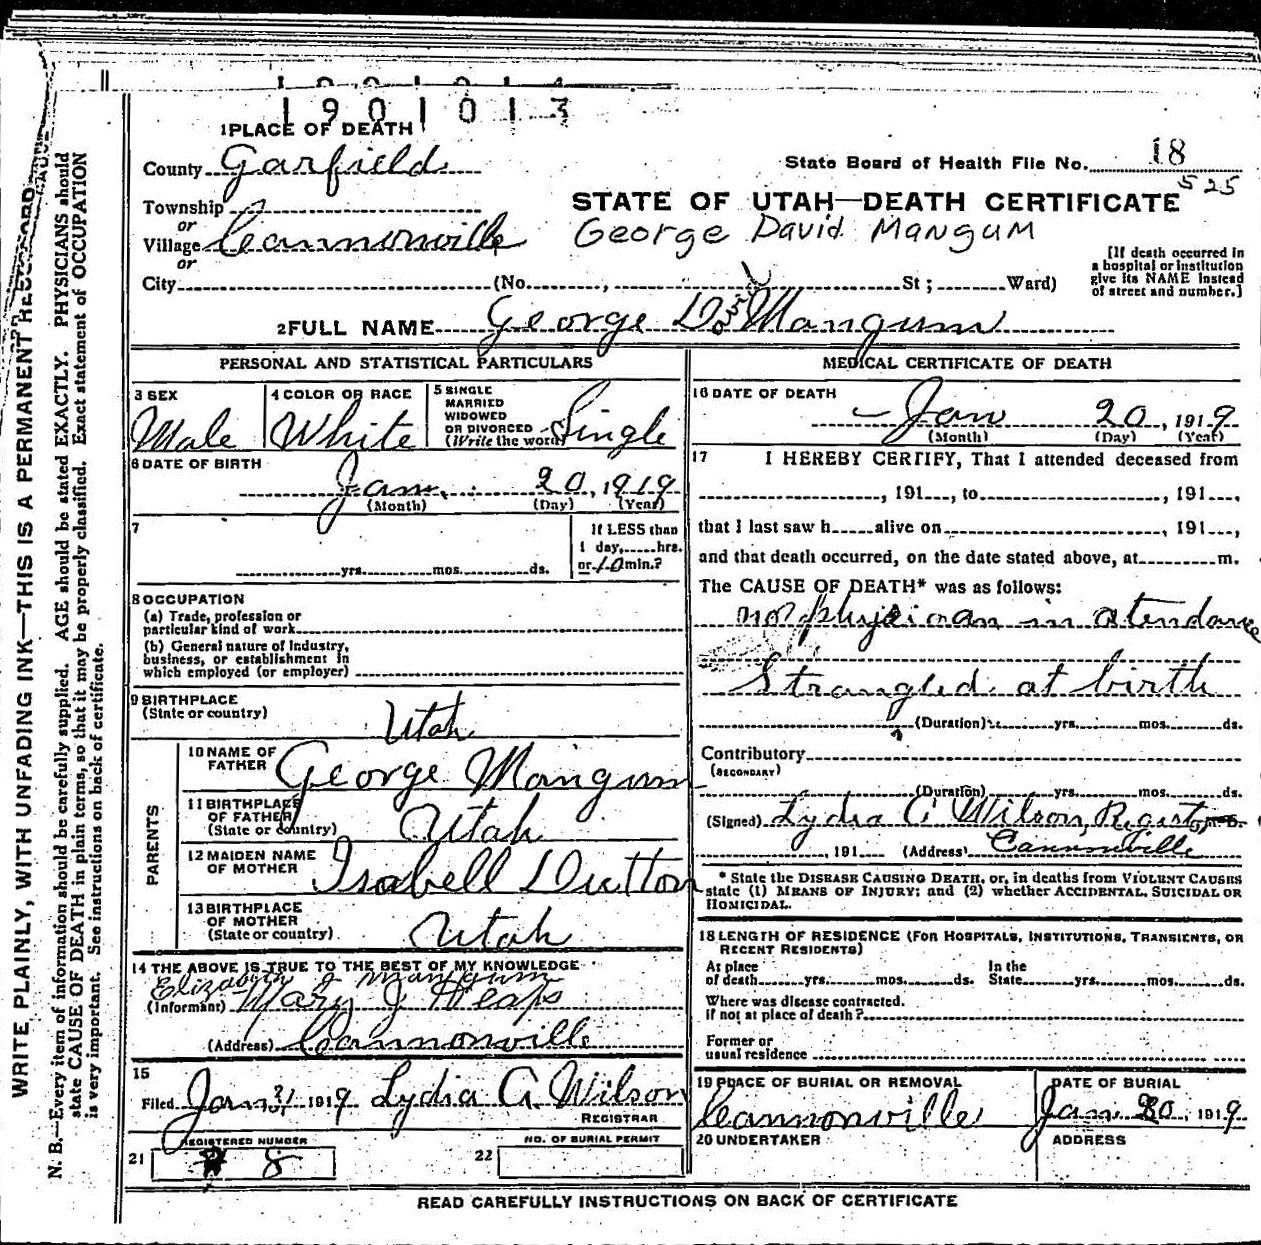 1901013
1 PLACE OF DEATH
County Garfield
State Board of Health File No. 18
525
Township
or
Village Cannonville
or
City (No. , St ; Ward)
STATE OF UTAH—DEATH CERTIFICATE
George David Mangum
[If death occurred in
a hospital or institution
give its NAME instead
of street and number.]
2 FULL NAME George David Mangum
PERSONAL AND STATISTICAL PARTICULARS
3 SEX
Male
4 COLOR OR RACE
White
5 SINGLE
MARRIED
WIDOWED
OR DIVORCED
(Write the word)
Single
6 DATE OF BIRTH
Jan. 20, 1919
(Month) (Day) (Year)
7
yrs. mos. ds.
If LESS than
1 day, hrs.
or 10 min.?
8 OCCUPATION
(a) Trade, profession or
particular kind of work
(b) General nature of industry,
business, or establishment in
which employed (or employer)
9 BIRTHPLACE
(State or country)
Utah
PARENTS
10 NAME OF
FATHER
George Mangum
11 BIRTHPLACE
OF FATHER
(State or country)
Utah
12 MAIDEN NAME
OF MOTHER
Isabell Dutton
13 BIRTHPLACE
OF MOTHER
(State or country)
Utah
14 THE ABOVE IS TRUE TO THE BEST OF MY KNOWLEDGE
Elizabeth J Mangum
(Informant) Mary J Heaps
(Address) Cannonville
15
Filed Jan 21 1919 Lydia A. Wilson
REGISTRAR
REGISTERED NUMBER
21 8
NO. OF BURIAL PERMIT
22
MEDICAL CERTIFICATE OF DEATH
16 DATE OF DEATH
Jan 20, 1919
(Month) (Day) (Year)
17 I HEREBY CERTIFY, That I attended deceased from
, 191 , to , 191 ,
that I last saw h alive on , 191 ,
and that death occurred, on the date stated above, at m.
The CAUSE OF DEATH* was as follows:
no physician in atendance
Strangled at birth
(Duration) yrs. mos. ds.
Contributory
(SECONDARY)
(Duration) yrs. mos. ds.
(Signed) Lydia A Wilson,
, 191 (Address) Cannonville
* State the DISEASE CAUSING DEATH, or, in deaths from VIOLENT CAUSES
state (1) MEANS OF INJURY; and (2) whether ACCIDENTAL, SUICIDAL OR
HOMICIDAL.
18 LENGTH OF RESIDENCE (FOR HOSPITALS, INSTITUTIONS, TRANSIENTS, OR
RECENT RESIDENTS)
At place
of death yrs. mos. ds.
In the
State yrs. mos. ds.
Where was disease contracted.
if not at place of death?
Former or
usual residence
19 PLACE OF BURIAL OR REMOVAL
Cannonville
DATE OF BURIAL
Jan 20, 1919
20 UNDERTAKER
ADDRESS
READ CAREFULLY INSTRUCTIONS ON BACK OF CERTIFICATE
WRITE PLAINLY, WITH UNFADING INK—THIS IS A PERMANENT RECORD
N. B.—Every item of information should be carefully supplied. AGE should be stated EXACTLY. PHYSICIANS should
state CAUSE OF DEATH in plain terms, so that it may be properly classified. Exact statement of OCCUPATION
is very important. See instructions on back of certificate.